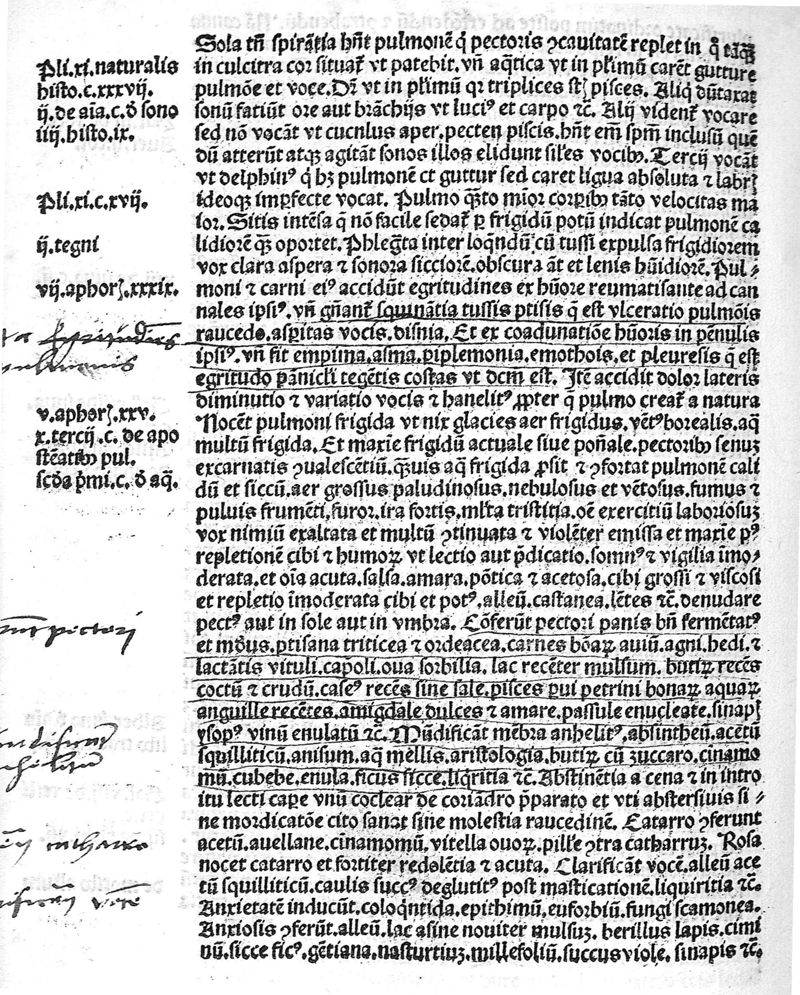 Pli.xi.naturalis
histo.c.xxxvij.
ij.de aĩa.c.ð sono
iiij.histo.ix.
Pli.xi.c.xvij.
ij.tegni
vij.aphorꝝ.xxxix.
v.aphorꝝ.xxv.
x.tercij.c.de apo
stẽatibꝰ pul.
scða p̃mi.c.ð aq̃.
Sola tñ spirãtia hñt pulmonẽ q̃ pectoris ꝯcauitatẽ replet in q̃
in culcitra cor situat᷑ vt patebit. vñ aq̃tica vt in pl̃imũ carẽt gutture
pulmõe et voce. Dr̃ vt in pl̃imũ qr triplices st̃ pisces. Aliq̃ dũtaxat
sonũ faciũt ore aut brãchijs vt luciꝰ et carpo ⁊c̃. Alij vident᷑ vocare
sed nõ vocãt vt cuculus aper.pecten piscis.hñt em̃ spm̃ inclusũ quẽ
dũ atterũt atqꝫ agitãt sonos illos elidunt sil̃es vocibꝰ. Tercij vocãt
vt delphinꝰ q̃ hꝫ pulmonẽ et guttur sed caret ligua absoluta ⁊ labrꝭ
ideoqꝫ imꝑfecte vocat. Pulmo q̃̃to mĩor corꝑibꝰ tãto velocitas ma
ior. Sitis intẽsa q̃ nõ facile sedat᷑ ꝑ frigidũ potũ indicat pulmonẽ ca
lidiorẽ q̃ꝫ oportet. Phleg̃ta inter loq̃ndũ cũ tussi expulsa frigidiorem
vox clara aspera ⁊ sonora sicciorẽ.obscura ãt et lenis hũidiorẽ. Pul⸗
moni ⁊ carni eiꝰ accidũt egritudines ex hũore reumatisante ad can
nales ipsiꝰ. vñ gñant᷑ squinãtia tussis ptisis q̃ est vlceratio pulmõis
raucedo.asp̃itas vocis.disnia. Et ex coadunatiõe hũoris in pẽnulis
ipsiꝰ. vñ fit empima.asma.ꝑiplemonia.emothois.et pleuresis q̃ est
egritudo pãnicli tegẽtis costas vt dcm̃ est. Itẽ accidit dolor lateris
diminutio ⁊ variatio vocis ⁊ hanelitꝰ ꝓpter q̃ pulmo creat᷑ a natura
Nocẽt pulmoni frigida vt nix glacies aer frigidus.vẽtꝰ borealis.aq̃
multũ frigida. Et maxĩe frigidũ actuale siue poñale.pectoribꝰ senuꝫ
excarnatis ꝯualescẽtiũ.q̃̃uis aq̃ frigida ꝓsit ⁊ ꝯfortat pulmonẽ cali
dũ et siccũ.aer grossus paludinosus.nebulosus et vẽtosus.fumus ⁊
puluis frumẽti.furor.ira fortis.ml̃ta tristitia.oẽ exercitiũ laboriosuꝫ
vox nimiũ exaltata et multũ ꝯtinuata ⁊ violẽter emissa et maxĩe pꝰ
repletionẽ cibi ⁊ humoꝝ vt lectio aut p̃dicatio.somnꝰ ⁊ vigilia ĩmo⸗
derata.et oĩa acuta.salsa.amara.põtica ⁊ acetosa.cibi grossi ⁊ viscosi
et repletio ĩmoderata cibi et potꝰ.alleũ.castanea.lẽtes ⁊c̃.denudare
pectꝰ aut in sole aut in vmbra. Cõferũt pectori panis bñ fermẽtatꝰ
et mũdus.ptisana triticea ⁊ ordeacea.carnes bõaꝝ auiũ.agni.hedi.⁊
lactãtis vituli.caponi.oua sorbilia. lac recẽter mulsum. butiꝝ recẽs
coctũ ⁊ crudũ.caseꝰ recẽs sine sale.pisces ꝑui petrini bonaꝝ aquaꝝ
anguille recẽtes.amigdale dulces ⁊ amare.passule enucleate.sinapꝭ
ysopꝰ vinũ enulatũ ⁊c̃. Mũdificãt mẽbra anhelitꝰ.absintheũ.acetũ
squilliticũ.anisum.aq̃ mellis.aristologia.butiꝝ cũ zuccaro.cinamo
mũ.cubebe.enula.ficus sicce.liq̃ritia ⁊c̃. Abstinẽtia a cena ⁊ in intro
itu lecti cape vnũ coclear de coriãdro p̃parato et vti abstersiuis si⸗
ne mordicatõe cito sanat᷑ sine molestia raucedinẽ. Catarro ꝯferunt
acetũ.auellane.cĩnamomũ.vitella ouoꝝ.pill̃e ꝯtra catharruꝫ. Rosa
nocet catarro et fortiter redolẽtia ⁊ acuta. Clarificãt vocẽ.alleũ ace
tũ squilliticũ.caulis succꝰ deglutitꝰ post masticationẽ.liquiritia ⁊c̃.
Anxietatẽ inducũt.coloq̃ntida.epithimũ.euforbiũ.fungi scamonea.
Anxiosis ꝯferũt.alleũ.lac asine nouiter mulsuꝫ. berillus lapis.cimi
nũ.sicce ficꝰ.gẽtiana.nasturtiuꝫ.millefoliũ.succus viole. sinapis ⁊c̃.